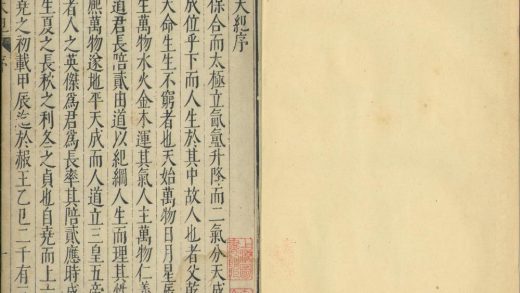 大紀序
保合而太極立氤氳升降而二氣分天成
成位乎下而人生於其中故人也者父乾
大命生生不窮者也天始萬物日月星辰
生萬物水火金木運其氣人主萬物仁義
道君長陪貳由道以紀綱人生而理其性
熙萬物遂地平天成而人道立三皇五帝
者人之英傑為君為長率其陪貳應時成
生夏之長秋之利冬之貞也自堯而上
堯之初載甲辰迄於赧王乙巳二千有
序